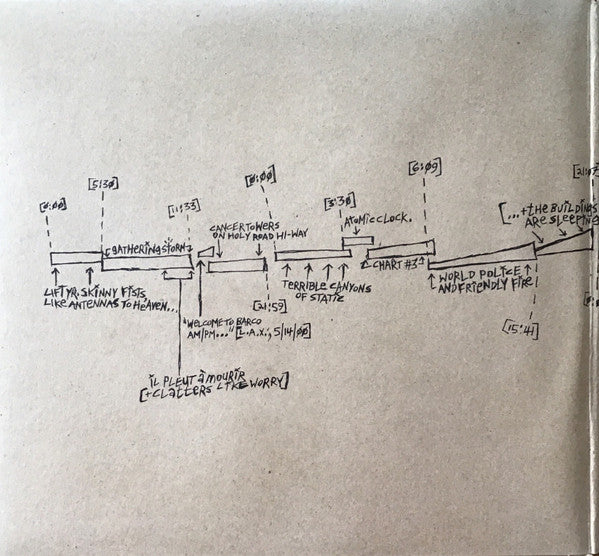 [0:00]
[5:30]
[11:33]
[0:00]
[3:30]
[6:09]
[21:07
GATHERING STORM
CANCER TOWERS
ON HOLY ROAD HI-WAY
ATOMIC CLOCK.
[...+THE BUILDINGS
ARE SLEEPING
LIFT YR. SKINNY FISTS,
LIKE ANTENNAS TO HEAVEN...
"WELCOME TO BARCO
AM/PM..." [L.A.X.; 5/14/00]
[21:59]
TERRIBLE CANYONS
OF STATIC
CHART #3
WORLD POLICE
AND FRIENDLY FIRE
[15:41]
IL PLEUT À MOURIR
[+CLATTERS LIKE WORRY]